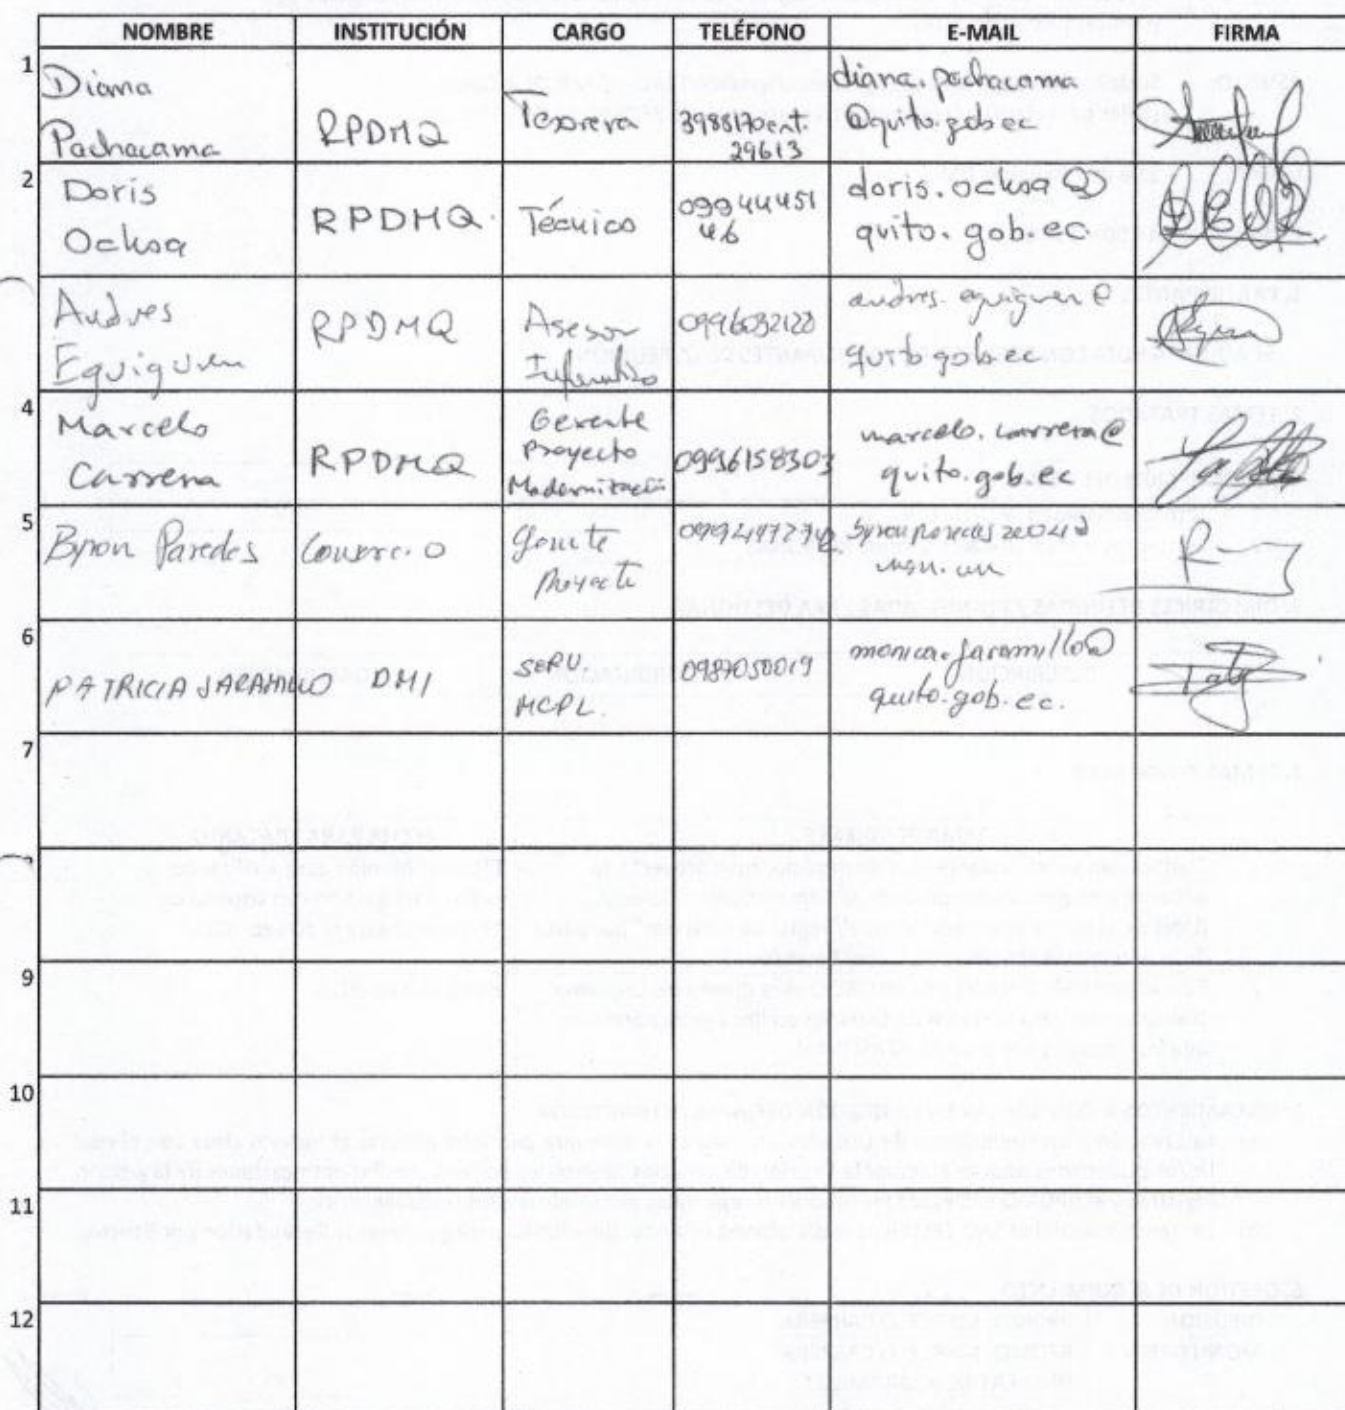 NOMBRE INSTITUCIÓN CARGO TELÉFONO E-MAIL FIRMA
1
Diana
Pachacama
RPDMQ
Tesorera
3988170 ext.
29613
diana.pachacama
@quito.gob.ec
2
Doris
Ochoa
RPDMQ.
Técnico
09944451
46
doris.ochoa@
quito.gob.ec.
3
Andres
Eguiguren
RPDMQ
Asesor
Informático
0996032122
andres.eguiguren@
quito.gob.ec
4
Marcelo
Carrera
RPDMQ
Gerente
Proyecto
Modernización
0996158303
marcelo.carrera@
quito.gob.ec
5
Byron Paredes
Consorcio
Gerente
Proyecto
byronparedes2004@
msn.com
6
PATRICIA JARAMILLO
DMI
SERV
MCPL.
0987050019
monica.jaramillo@
quito.gob.ec.
7
9
10
11
12